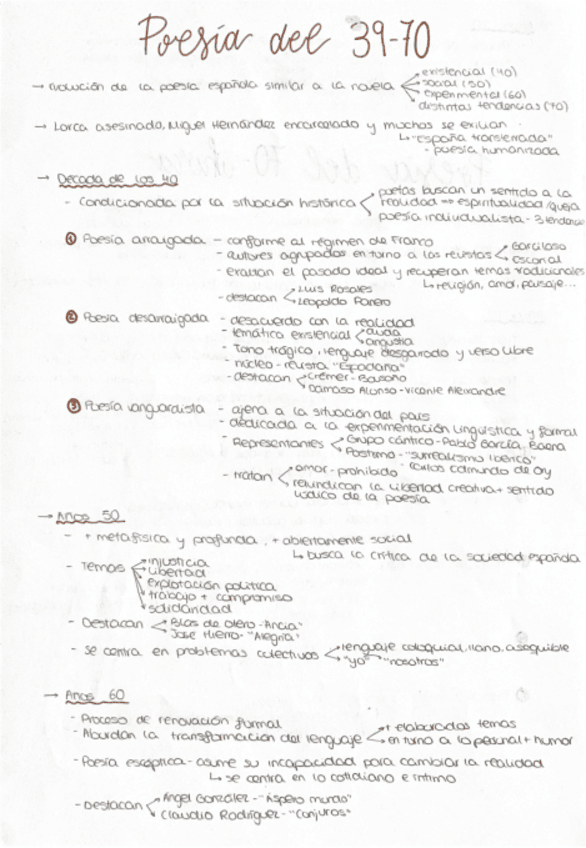 Poesía del 39-70
→ Evolución de la poesía española similar a la novela
existencial (40)
social (50)
experimental (60)
distintas tendencias (70)
→ Lorca asesinado, Miguel Hernández encarcelado y muchos se exilian
↳ "España transterrada"
- poesía humanizada
→ Década de los 40
- Condicionada por la situación histórica
poetas buscan un sentido a la
realidad ⇒ espiritualidad/queja
poesía individualista - 3 tendenc
① Poesía arraigada - conforme al régimen de Franco
- autores agrupados en torno a las revistas
Garcilaso
Escorial
- exaltan el pasado ideal y recuperan temas tradicionales
↳ religión, amor, paisaje...
- destacan
Luis Rosales
Leopoldo Panero
② Poesía desarraigada - desacuerdo con la realidad
- temática existencial
duda
angustia
- Tono trágico, lenguaje desgarrado y verso libre
- núcleo - revista "Espadaña"
- destacan
Crémer -
Dámaso Alonso - Vicente Aleixandre
③ Poesía vanguardista - ajena a la situación del país
- dedicada a la experimentación lingüística y formal
- Representantes
Grupo cántico - Pablo García Baena
Postismo - "surrealismo ibérico"
Carlos Edmundo de Ory
- tratan
amor - prohibido
reivindican la libertad creativa + sentido
lúdico de la poesía
→ Años 50
- + metafísica y profunda, + abiertamente social
↳ busca la crítica de la sociedad española
- Temas
injusticia
libertad
explotación política
trabajo + compromiso
solidaridad
- Destacan
Blas de Otero - "Ancia"
José Hierro - "Alegría"
- se centra en problemas colectivos
lenguaje coloquial, llano, asequible
"yo" → "nosotros"
→ Años 60
- Proceso de renovación formal
- Abordan la transformación del lenguaje
+ elaborados temas
en torno a lo personal + humor
- Poesía escéptica - asume su incapacidad para cambiar la realidad
↳ se centra en lo cotidiano e íntimo
- Destacan
Ángel González - "Áspero mundo"
Claudio Rodríguez - "Conjuros"